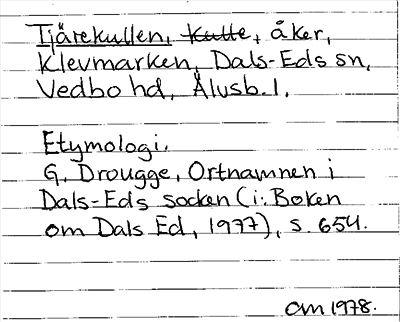 Tjärekullen, Kulle, åker,
Klevmarken, Dals-Eds sn,
Vedbo hd, Älvsb. l.
Etymologi.
G. Drougge, Ortnamnen i
Dals-Eds socken (i: Boken
om Dals Ed, 1977), s. 654.
om 1978.